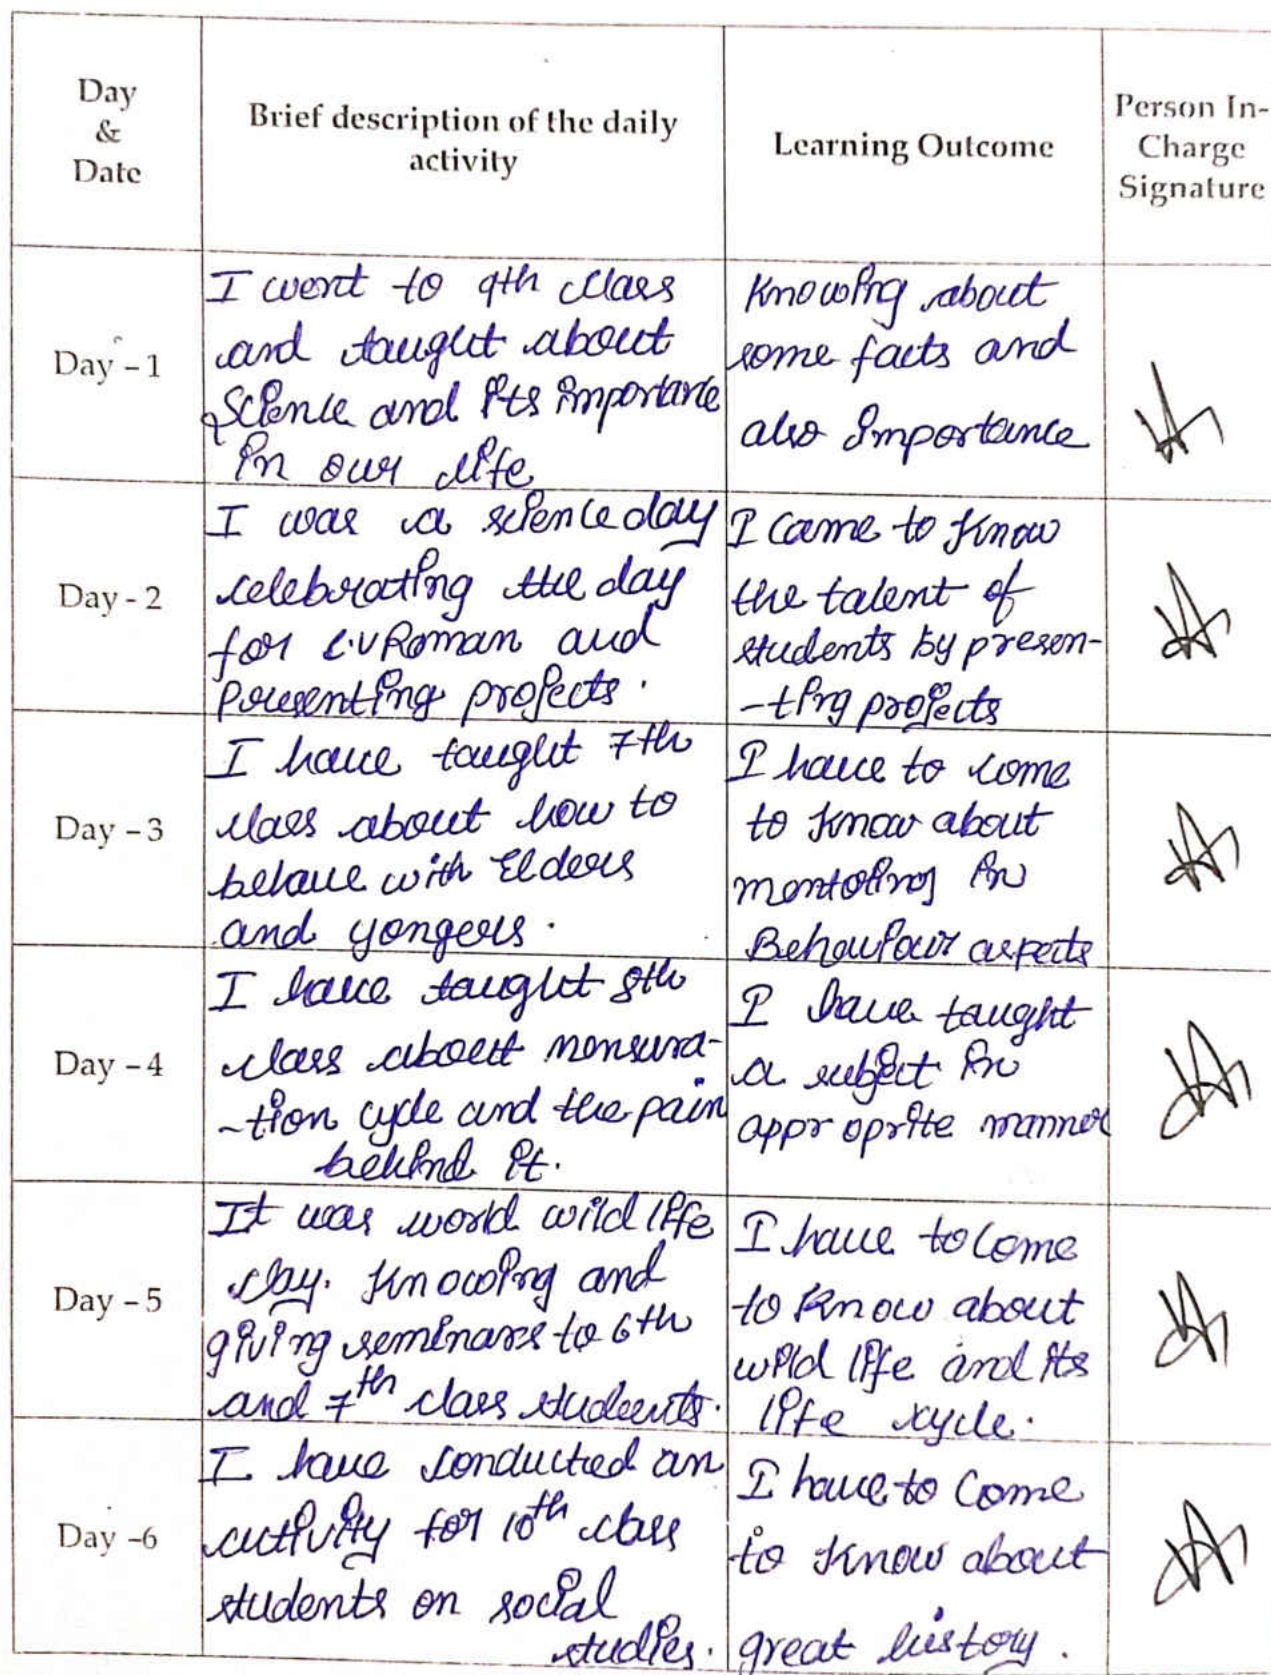 Day
&
Date
Brief description of the daily
activity
Learning Outcome
Person In-
Charge
Signature
Day - 1
I went to 9th class
and taught about
Science and its importance
in our life
Knowing about
some facts and
also importance
Day - 2
I was a science day
celebrating the day
for C.V Roman and
presenting projects.
I came to know
the talent of
students by presen-
-ting projects
Day - 3
I have taught 7th
class about how to
behave with Elders
and yongers.
I have to come
to know about
in
Behaviour aspects
Day - 4
I have taught 8th
class about mensura-
-tion cycle and the pain
behind it.
I have taught
a subject in
appr oprite manner
Day - 5
It was world wild life
day. Knowing and
giving seminars to 6th
and 7th class students.
I have to come
to know about
wild life and its
life cycle.
Day -6
I have conducted an
activity for 10th class
students on social
studies.
I have to come
to know about
great history.